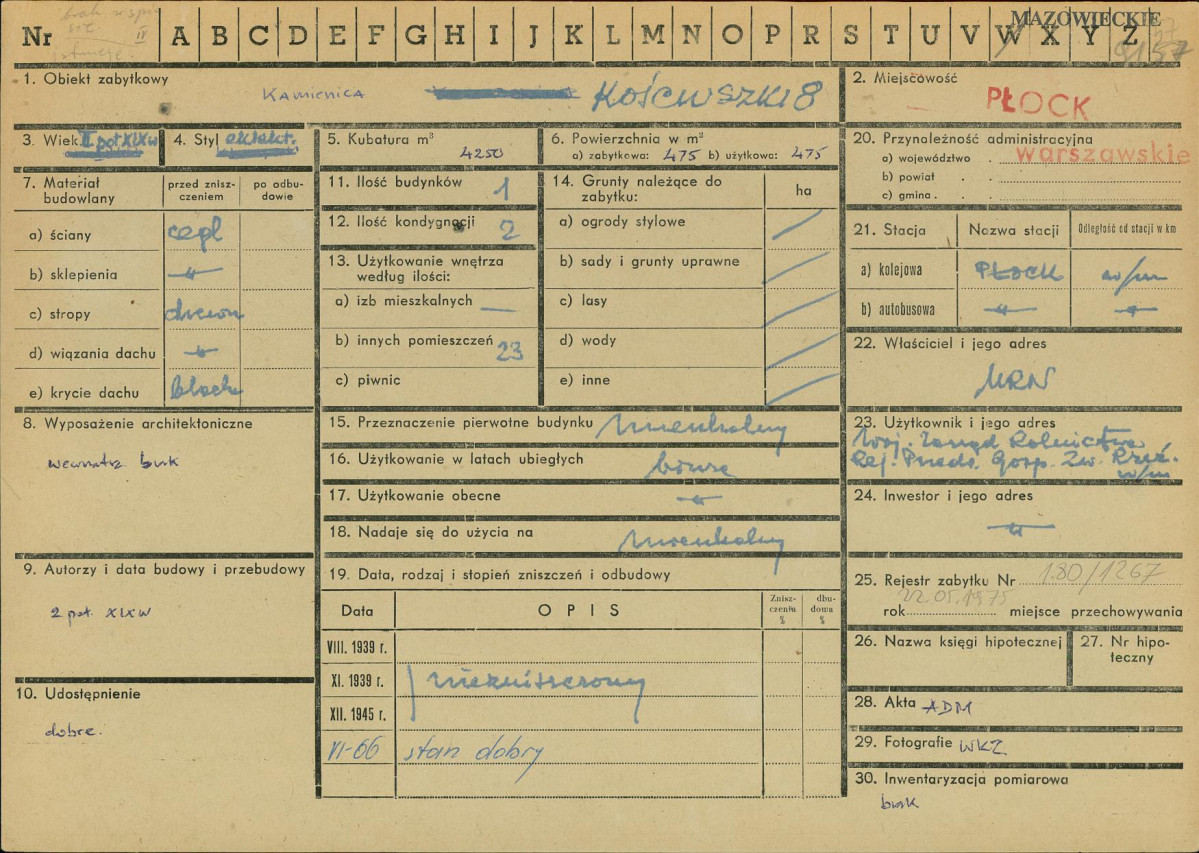 Nr A B C D E F G H I J K L M N O P R S T U V W X Y Z
MAZOWIECKIE
1. Obiekt zabytkowy
Kamienica Kościuszki 8
2. Miejscowość
PŁOCK
3. Wiek II poł XIX w
4. Styl eklekt.
5. Kubatura m³
4250
6. Powierzchnia w m²
a) zabytkowa: 475 b) użytkowa: 475
20. Przynależność administracyjna
a) województwo warszawskie
b) powiat
c) gmina
7. Materiał budowlany
przed znisz-
czeniem
po odbu-
dowie
a) ściany cegł
b) sklepienia -"-
c) stropy drewn
d) wiązania dachu -"-
e) krycie dachu blach
11. Ilość budynków 1
12. Ilość kondygnacji 2
13. Użytkowanie wnętrza
według ilości:
a) izb mieszkalnych —
b) innych pomieszczeń 23
c) piwnic
14. Grunty należące do
zabytku:
ha
a) ogrody stylowe
b) sady i grunty uprawne
c) lasy
d) wody
e) inne
21. Stacja Nazwa stacji Odległość od stacji w km
a) kolejowa PŁOCK w/m
b) autobusowa -"- -"-
22. Właściciel i jego adres
MRN
8. Wyposażenie architektoniczne
wewnątrz brak
15. Przeznaczenie pierwotne budynku mieszkalny
16. Użytkowanie w latach ubiegłych biura
17. Użytkowanie obecne -"-
18. Nadaje się do użycia na mieszkalny
23. Użytkownik i jego adres
Woj. Zarząd Rolnictwa
Rej. Przeds. Gosp. Zw. Rzeź.
w/m
24. Inwestor i jego adres
-"-
9. Autorzy i data budowy i przebudowy
2 poł. XIX w
19. Data, rodzaj i stopień zniszczeń i odbudowy
Data OPIS
Znisz-
czenia
%
dbu-
dowa
%
VIII. 1939 r.
XI. 1939 r. niezniszczony
XII. 1945 r.
VI-66 stan dobry
25. Rejestr zabytku Nr 180/1267
rok 22.05.1975 miejsce przechowywania
26. Nazwa księgi hipotecznej
27. Nr hipo-
teczny
10. Udostępnienie
dobre.
28. Akta ADM
29. Fotografie WKZ
30. Inwentaryzacja pomiarowa
brak